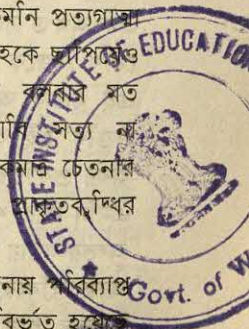 মনি প্রত্যগাত্মা
হকে ছাপিয়েও
বলবার মত
সত্য না
চেতনার
প্রাকৃতবুদ্ধির
নায় পরিব্যাপ্ত
বর্ভূত হয়েছে
STATE INSTITUTE OF EDUCATION
Govt. of W